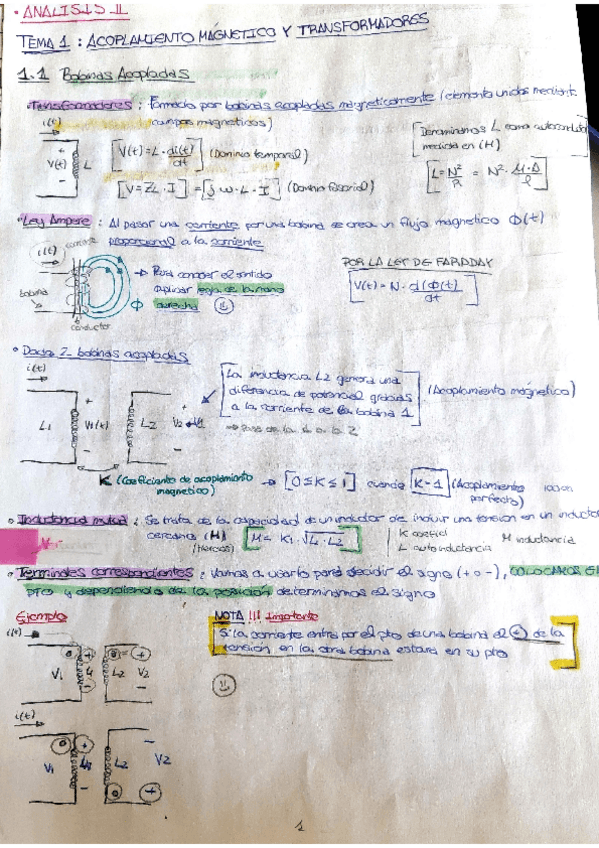 • ANALISIS II
TEMA 1 : ACOPLAMIENTO MÁGNETICO Y TRANSFORMADORES
1.1 Bobinas Acopladas
• Transformadores : Formada por bobinas acopladas mágneticamente (elementos unidos mediante
campos magneticos)
i(t)
V(t) L
+
-
[V(t) = L · di(t)/dt] (Dominio temporal)
[V = ZL · I] = [j ω · L · I] (Dominio Fasorial)
Denominamos L como autoinductancia
medida en (H)
[L = N²/R = N² · μ · A / l]
• Ley Ampere : Al pasar una corriente por una bobina se crea un flujo magnetico Φ(t)
proporcional a la corriente
i(t) corriente
bobina
conductor
Φ
→ Para conocer el sentido
aplicar regla de la mano
derecha
POR LA LEY DE FARADAY
[V(t) = N · d(Φ(t))/dt]
• Dadas 2 bobinas acopladas
i(t)
L1 V1(t) L2 V2
+ +
- -
La inductancia L2 genera una
diferencia de potencial gracias
a la corriente de la bobina 1
(Acoplamiento mágnetico)
K (Coeficiente de acoplamiento
magnetico) → [0 ≤ K ≤ 1] cuando [K=1] (Acoplamiento
perfecto)
• Inductancia mutua : Se trata de la capacidad de un inductor de inducir una tensión en un inductor
cercano (H)
(Henrios)
K coefici
L autoinductancia
M inductancia
• Terminales correspondientes : Vamos a usarlo para decidir el signo (+ o -), COLOCAMOS EL
PTO y dependiendo de la posición determinamos el signo
Ejemplo
NOTA !!! Importante
Si la corriente entra por el pto de una bobina el (+) de la
tensión en la otra bobina estará en su pto
i(t)
V1 L1 L2 V2
i(t)
V1 L1 L2 V2
1